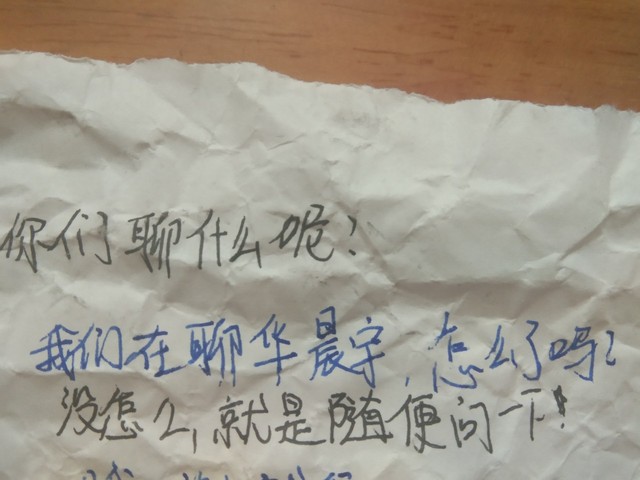 你们聊什么呢?
我们在聊华晨宇,怎么了吗?
没怎么,就是随便问一下!